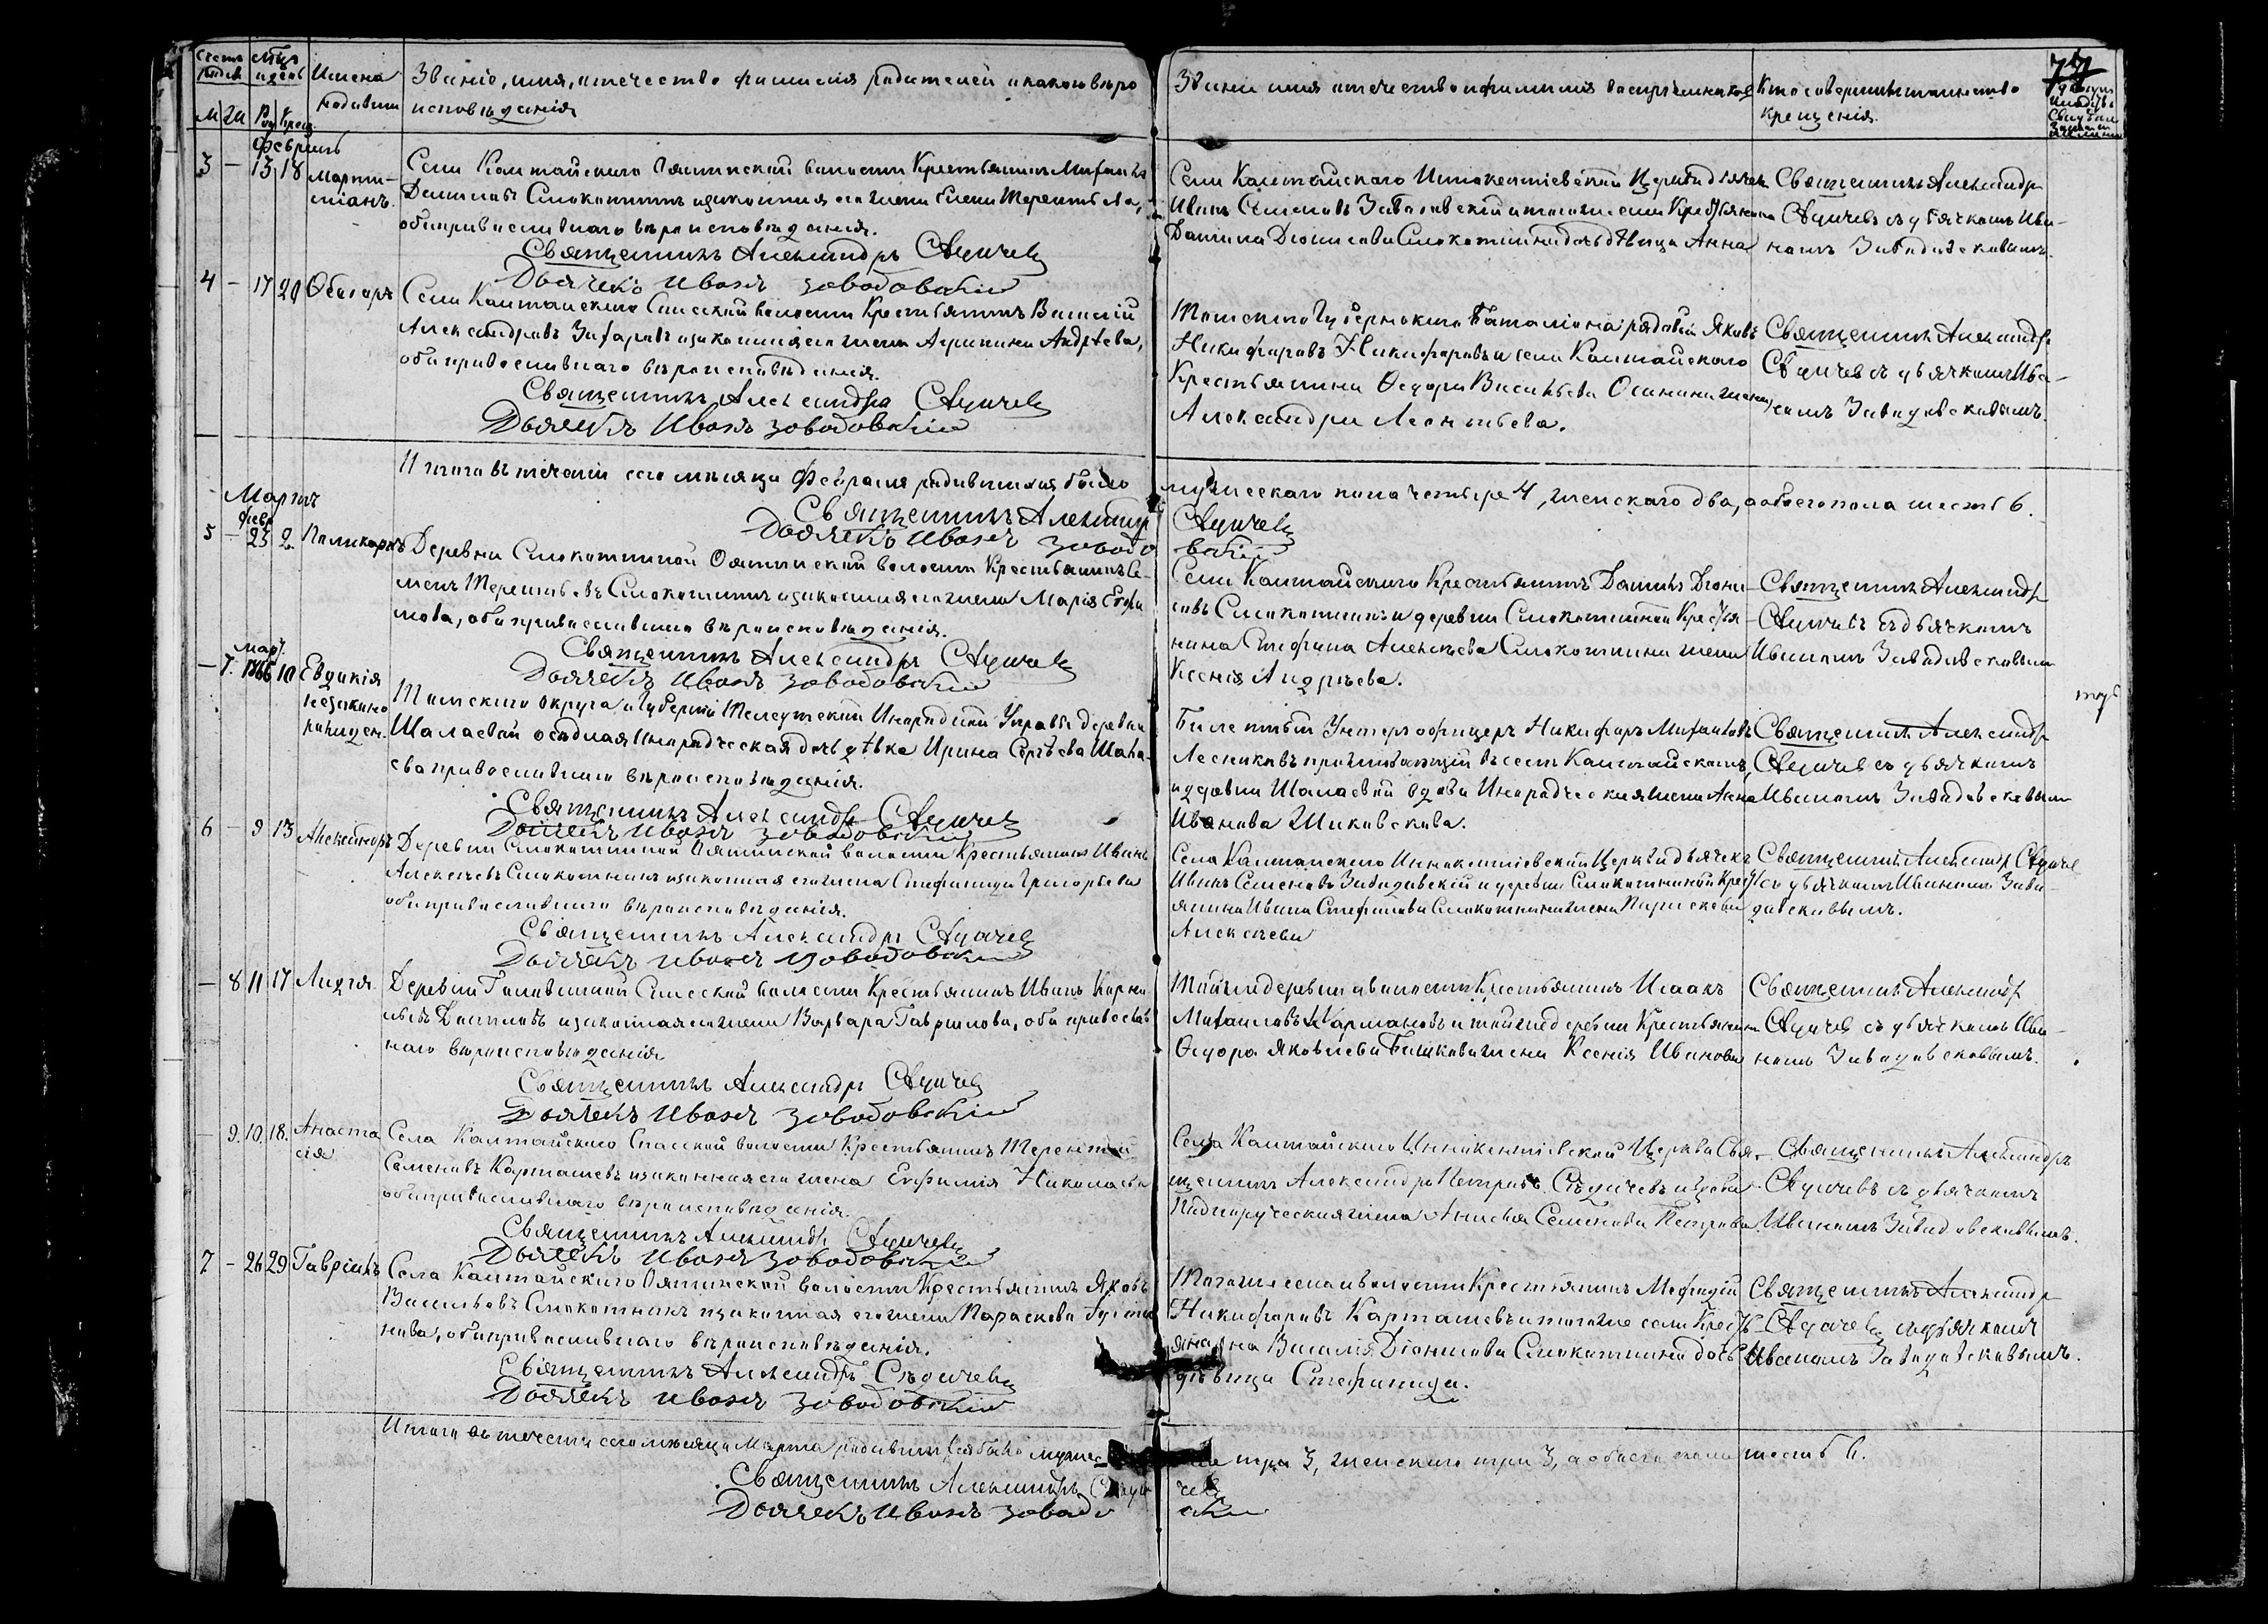 Счетъ родив.
Мѣс. и день
Имена родивш.
Званіе, имя, отечество фамилія родителей и какого вѣро
исповѣданія
Званіе имя отечество и фамилія воспріемниковъ
Кто совершилъ таинство
крещенія.
77
М Ж Род Крещ.
Февраль
3 – 13 18 Мартиніанъ.
Села Калтайскаго Оятинской волости Крестьянинъ Михаилъ
Даниловъ Смокотинъ и законная его жена Елена Терентьева,
оба православнаго вѣроисповѣданія.
Священникъ Александръ
Дьячекъ Иванъ Заводовскій
Села Калтайскаго Иннокентіевской Церкви дьячекъ
Иванъ Семеновъ Заводовскій и тогоже села Крестьянина
Данила Діонисова Смокотина дочь дѣвица Анна
Священникъ Александръ
съ дьячкомъ Ива-
номъ Заводовскимъ.
4 – 17 20 Ѳеодоръ
Села Калтайскаго Спасской волости Крестьянинъ Василій
Александровъ Захаровъ и законная его жена Агрипина Андрѣева,
оба православнаго вѣроисповѣданія.
Священникъ Александръ
Дьячекъ Иванъ Заводовскій
Томскаго Губернскаго Баталіона рядовой Яковъ
Никифоровъ Никифоровъ и села Калтайскаго
Крестьянина Ѳедора Васильева Осинина жена
Александра Леонтьева.
Священникъ Александръ
съ дьячкомъ Ива-
номъ Заводовскимъ.
Итого въ теченіи сего мѣсяца Февраля родившихся было
мужескаго пола четыре 4, женскаго два, а обоего пола шесть 6.
Священникъ Александръ
Дьячекъ Иванъ Заводовскій
Мартъ
Февр
5 – 23 2 Поликарпъ
Деревни Смокотиной Оятинской волости Крестьянинъ Се-
менъ Терентьевъ Смокотинъ и законная его жена Марія Ефи
мова, оба православнаго вѣроисповѣданія.
Священникъ Александръ
Дьячекъ Иванъ Заводовскій
Села Калтайскаго Крестьянинъ Данилъ Діони
совъ Смокотинъ и деревни Смокотиной Крестья-
нина Стефана Алексѣева Смокотина жена
Ксенія Андрѣева.
Священникъ Александръ
съ дьячкомъ
Иваномъ Заводовскимъ
Март.
– 7. 10 Евдокія
незаконо
рожден.
Томскаго Округа и Губерніи Телеутской Инородной Управы деревни
Шалаевой осѣдлая Инородческая дочь дѣвка Ирина Сергѣева Шала-
ева православнаго вѣроисповѣданія.
Священникъ Александръ
Дьячекъ Иванъ Заводовскій
Билетный Унтеръ офицеръ Никифоръ Михайловъ
Лесниковъ проживающій въ селѣ Калтайскомъ,
и деревни Шалаевой вдова Инородческая жена Анна
Иванова Шиковскова.
Священникъ Александръ
съ дьячкомъ
Иваномъ Заводовскимъ
6 – 9 13 Александръ
Деревни Смокотиной Оятинской волости Крестьянинъ Иванъ
Алексѣевъ Смокотинъ и законная его жена Стефанида Григорьева
оба православнаго вѣроисповѣданія.
Священникъ Александръ
Дьячекъ Иванъ Заводовскій
Села Калтайскаго Иннокентіевской Церкви дьячекъ
Иванъ Семеновъ Заводовскій и деревни Смокотиной Кресть
янина Ивана Стефанова Смокотина жена Параскева
Алексѣева
Священникъ Александръ
съ дьячкомъ Иваномъ Заво-
довскимъ.
– 8 11 17 Лидія.
Деревни Головиной Спасской волости Крестьянинъ Иванъ Корни
льевъ Даниловъ и законная его жена Варвара Гаврилова, оба православ
наго вѣроисповѣданія
Священникъ Александръ
Дьячекъ Иванъ Заводовскій
Той же деревни и волости Крестьянинъ Исаакъ
Михаиловъ Кармановъ и той же деревни Крестьянина
Ѳедора Яковлева Башкова жена Ксенія Иванова
Священникъ Александръ
съ дьячкомъ Ива-
номъ Заводовскимъ.
– 9. 10. 18. Анаста
сія
Села Калтайскаго Спасской волости Крестьянинъ Терентій
Семеновъ Карташевъ и законная его жена Евфимія Николаева
оба православнаго вѣроисповѣданія.
Священникъ Александръ
Дьячекъ Иванъ Заводовскій
Села Калтайскаго Иннокентіевской Церкви Свя-
щенникъ Александръ Петровъ и вдова
Подпоручическая жена Анисья Семенова Петрова
Священникъ Александръ
съ дьячкомъ
Иваномъ Заводовскимъ.
7 – 26 29 Гавріилъ
Села Калтайскаго Оятинской волости Крестьянинъ Яковъ
Васильевъ Смокотинъ и законная его жена Параскева Густи
нова, оба православнаго вѣроисповѣданія.
Священникъ Александръ
Дьячекъ Иванъ Заводовскій
Тогоже села и волости Крестьянинъ Мефодій
Никифоровъ Карташевъ и тогоже села Кресть-
янина Василія Діонисова Смокотина дочь
дѣвица Стефанида.
Священникъ Александръ
съ дьячкомъ
Иваномъ Заводовскимъ.
Итого въ теченіи сего мѣсяца Марта родившихся было мужес
три 3, женскаго три 3, а обоего пола шесть 6.
Священникъ Александръ
Дьячекъ Иванъ Заводовскій